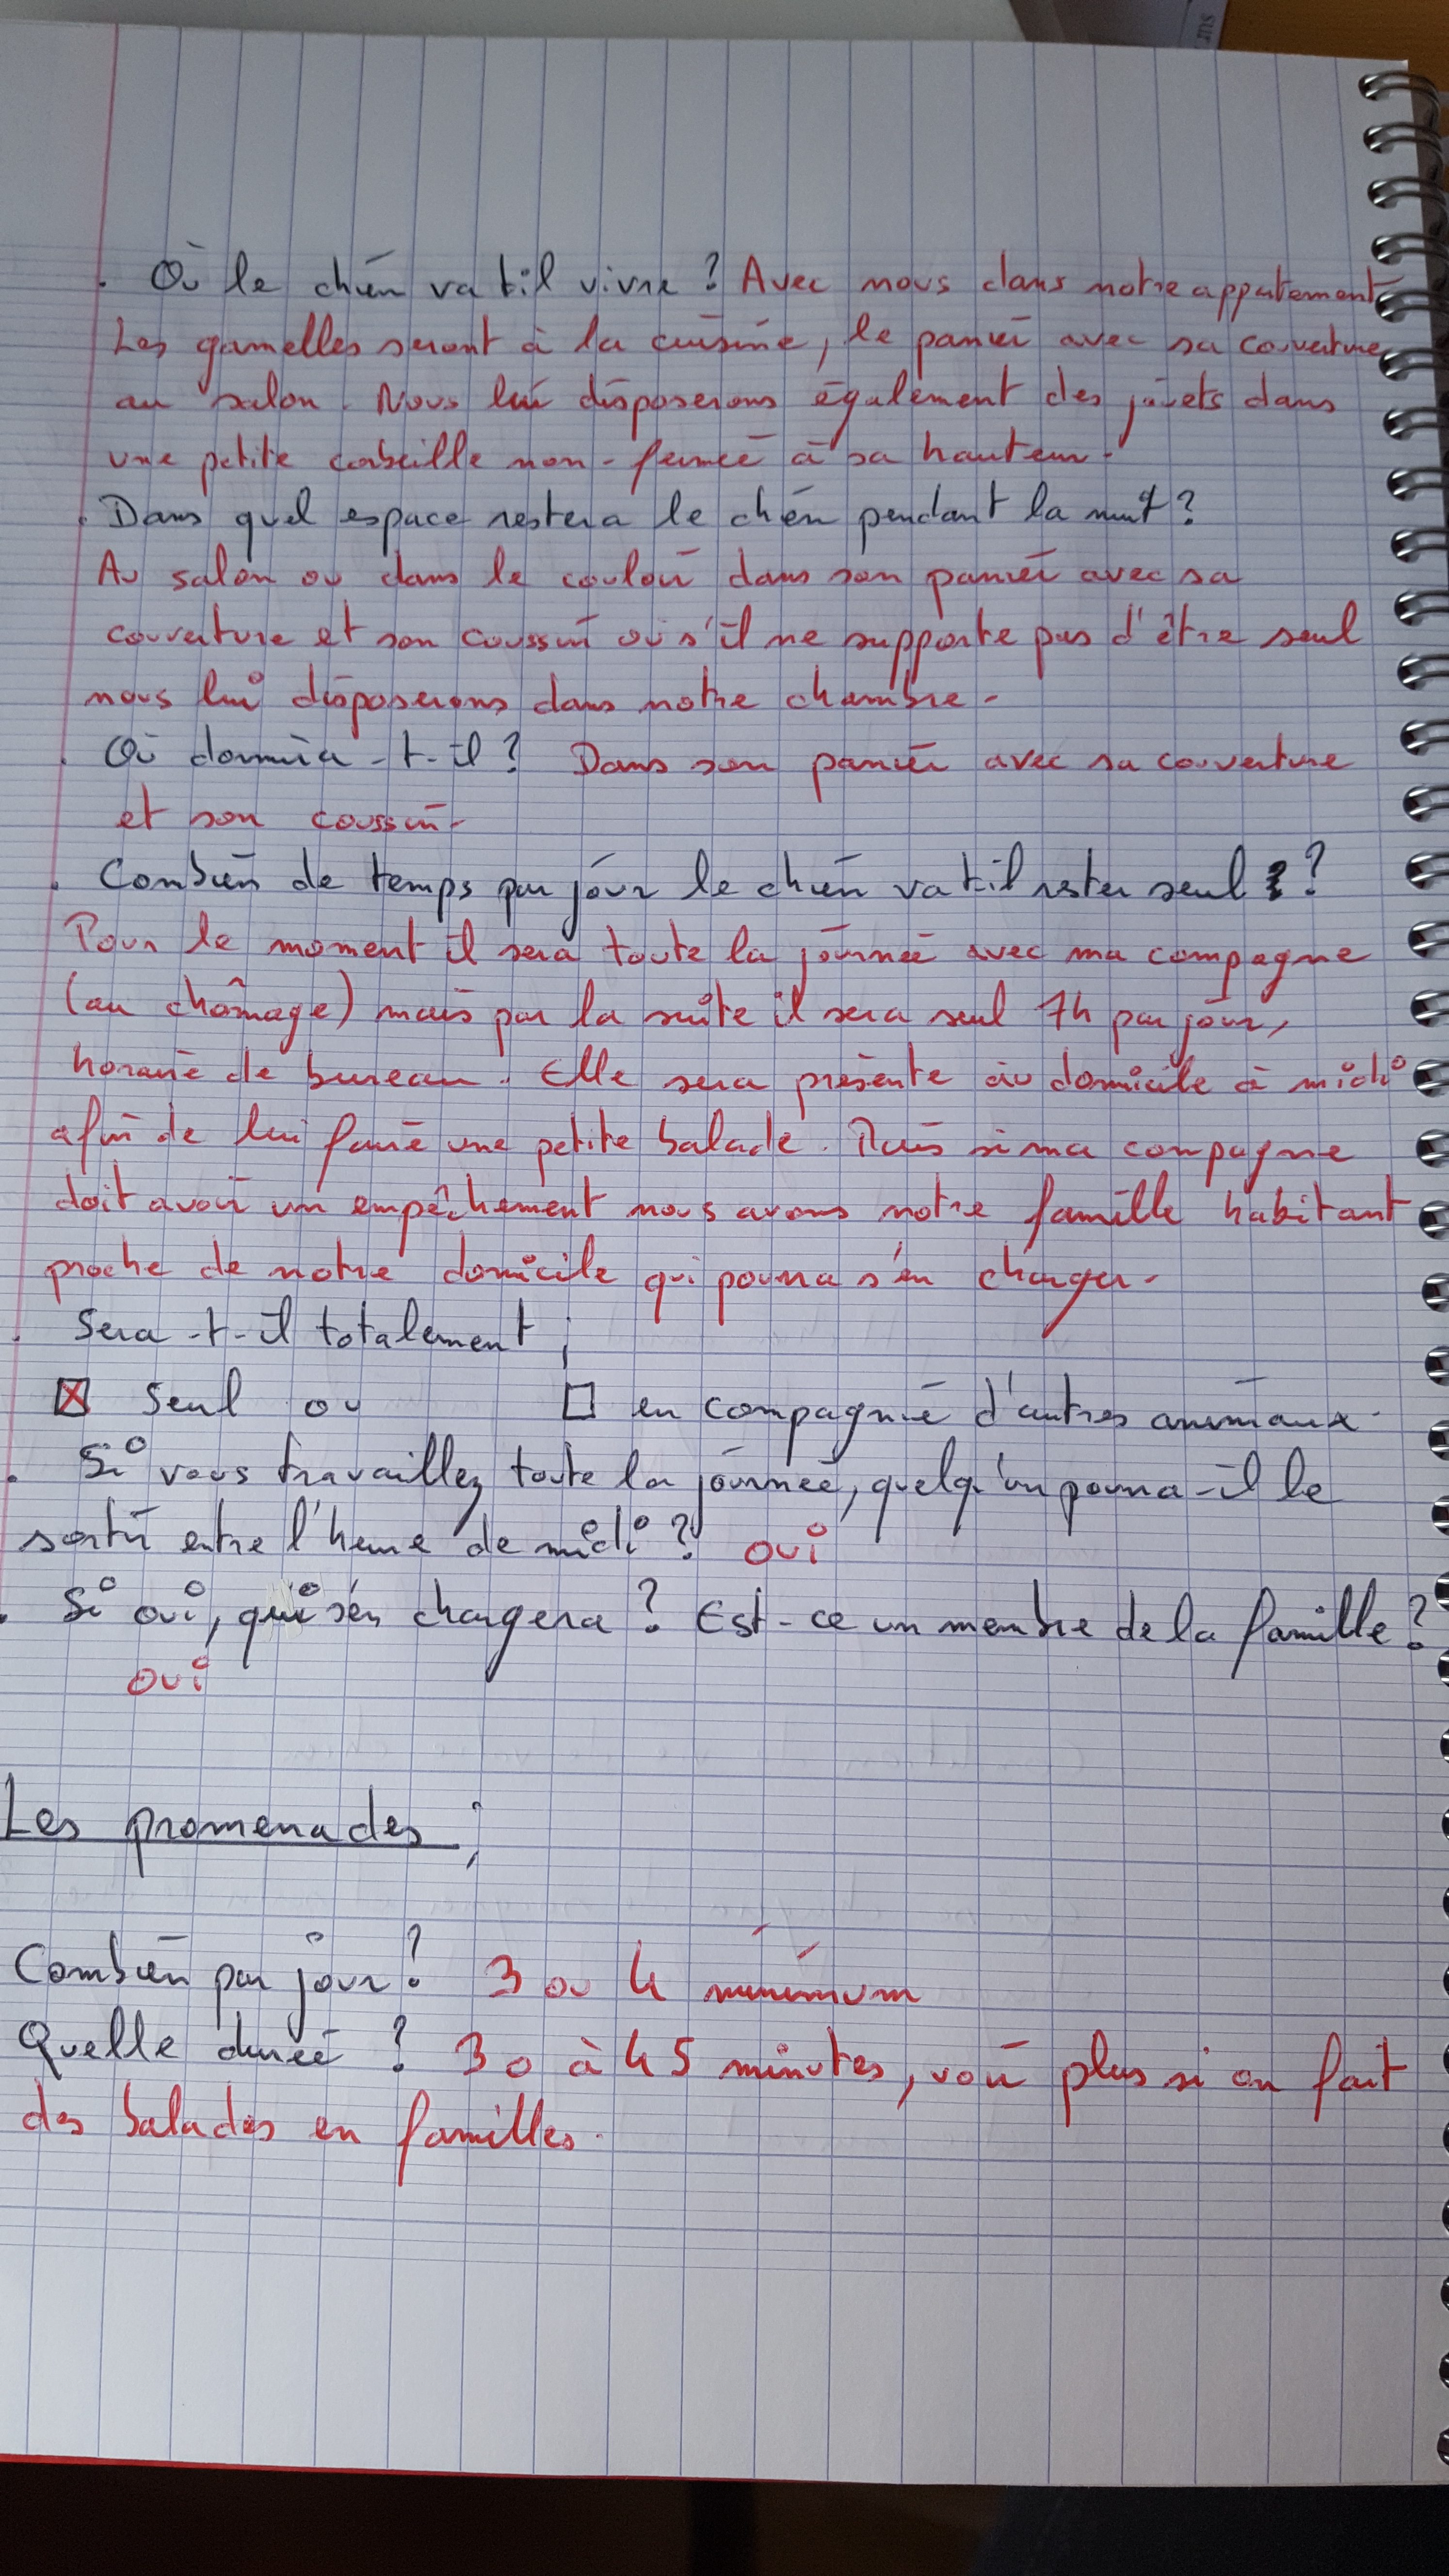 sur
. Où le chien va til vivre ? Avec nous dans notre appartement.
Les gamelles seront à la cuisine, le panier avec sa couverture
au salon. Nous lui disposerons également des jouets dans
une petite corbeille non-fermée à sa hauteur.
. Dans quel espace restera le chien pendant la nuit ?
Au salon ou dans le couloir dans son panier avec sa
couverture et son coussin ou s'il ne supporte pas d'être seul
nous lui disposerons dans notre chambre.
. Où dormira-t-il ? Dans son panier avec sa couverture
et son coussin.
. Combien de temps par jour le chien va til rester seul ?
Pour le moment il sera toute la journée avec ma compagne
(au chômage) mais par la suite il sera seul 7h par jour,
horaire de bureau. Elle sera présente au domicile à midi
afin de lui faire une petite balade. Puis si ma compagne
doit avoir un empêchement nous avons notre famille habitant
proche de notre domicile qui pourra s'en charger.
. Sera-t-il totalement ;
☒ Seul ou ☐ en compagnie d'autres animaux.
. Si vous travaillez toute la journée, quelqu'un pourra-il le
sortir entre l'heure de midi ? oui
. Si oui, qui s'en chargera ? Est-ce un membre de la famille ?
oui
Les promenades ;
Combien par jour ? 3 ou 4 minimum
Quelle durée ? 30 à 45 minutes, voir plus si on fait
des balades en familles.